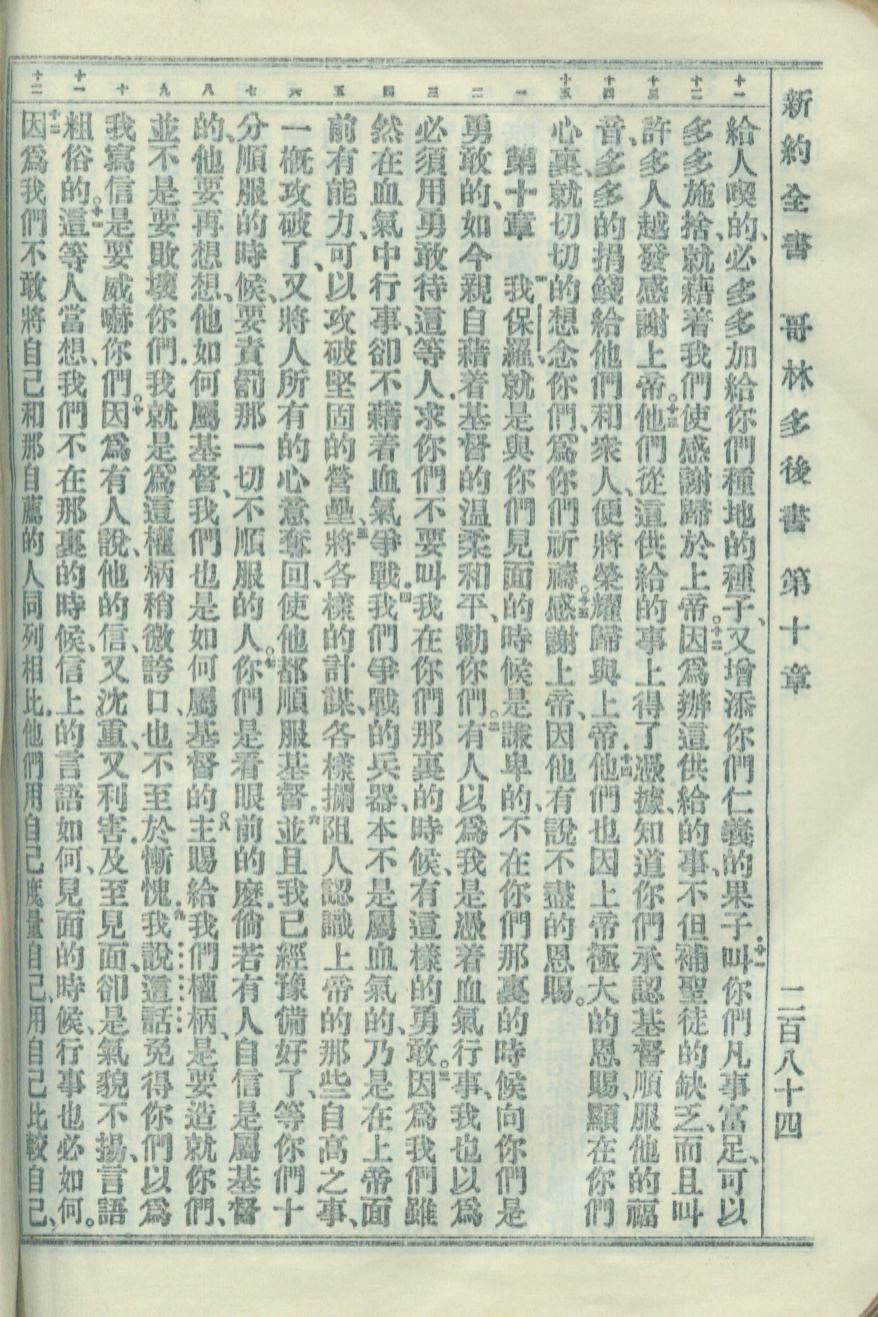 新約全書 哥林多後書 第十章 二百八十四
十一 十二 十三 十四 十五 一 二 三 四 五 六 七 八 九 十 十一 十二
給人喫的、必多多加給你們種地的種子、又增添你們仁義的果子.十一叫你們凡事富足、可以
多多施捨、就藉着我們使感謝歸於上帝。十二因爲辦這供給的事、不但補聖徒的缺乏、而且叫
許多人越發感謝上帝。十三他們從這供給的事上得了憑據、知道你們承認基督順服他的福
音、多多的捐錢給他們和衆人、便將榮耀歸與上帝.十四他們也因上帝極大的恩賜、顯在你們
心裏、就切切的想念你們、爲你們祈禱。十五感謝上帝、因他有說不盡的恩賜。
第十章 一我保羅、就是與你們見面的時候是謙卑的、不在你們那裏的時候向你們是
勇敢的、如今親自藉着基督的溫柔和平、勸你們。二有人以爲我是憑着血氣行事、我也以爲
必須用勇敢待這等人.求你們不要叫我在你們那裏的時候、有這樣的勇敢。三因爲我們雖
然在血氣中行事、卻不藉着血氣爭戰.四我們爭戰的兵器、本不是屬血氣的、乃是在上帝面
前有能力、可以攻破堅固的營壘、五將各樣的計謀、各樣攔阻人認識上帝的那些自高之事、
一概攻破了、又將人所有的心意奪回、使他都順服基督.六並且我已經豫備好了、等你們十
分順服的時候、要責罰那一切不順服的人。七你們是看眼前的麽.倘若有人自信是屬基督
的、他要再想想、他如何屬基督、我們也是如何屬基督的。八主賜給我們權柄、是要造就你們、
並不是要敗壞你們.我就是爲這權柄稍微誇口、也不至於慚愧.九我說這話、免得你們以爲
我寫信是要威嚇你們。十因爲有人說、他的信、又沈重、又利害.及至見面、卻是氣貌不揚、言語
粗俗的。十一這等人當想、我們不在那裏的時候、信上的言語如何、見面的時候、行事也必如何。
十二因爲我們不敢將自己和那自薦的人同列相比.他們用自己度量自己、用自己比較自己、